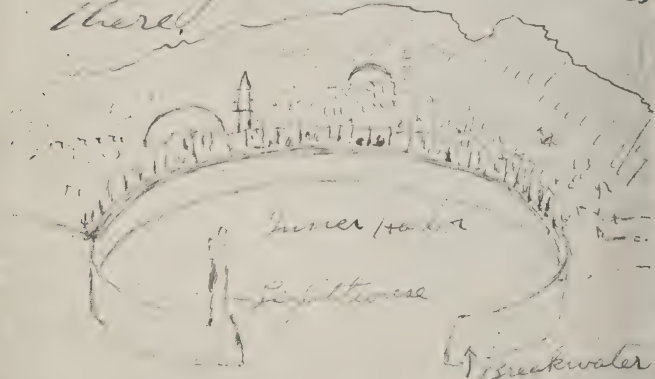 there!
Inner Harbor
Lighthouse
Breakwater